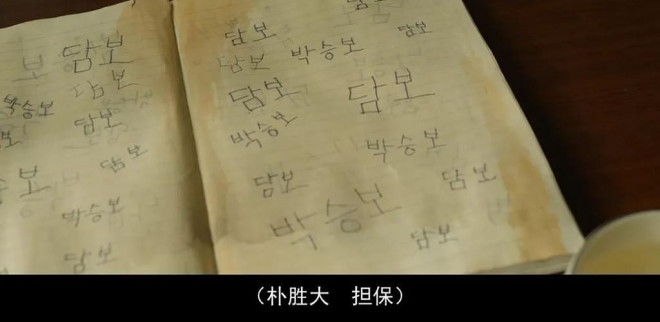 보 담보
담보
박승보
담보
보
담보
보
박승보
담보
담보
담보
담보 박승보
담보 담보
박승보
박승보
담보
담보
박승보
담보
（朴胜大 担保）